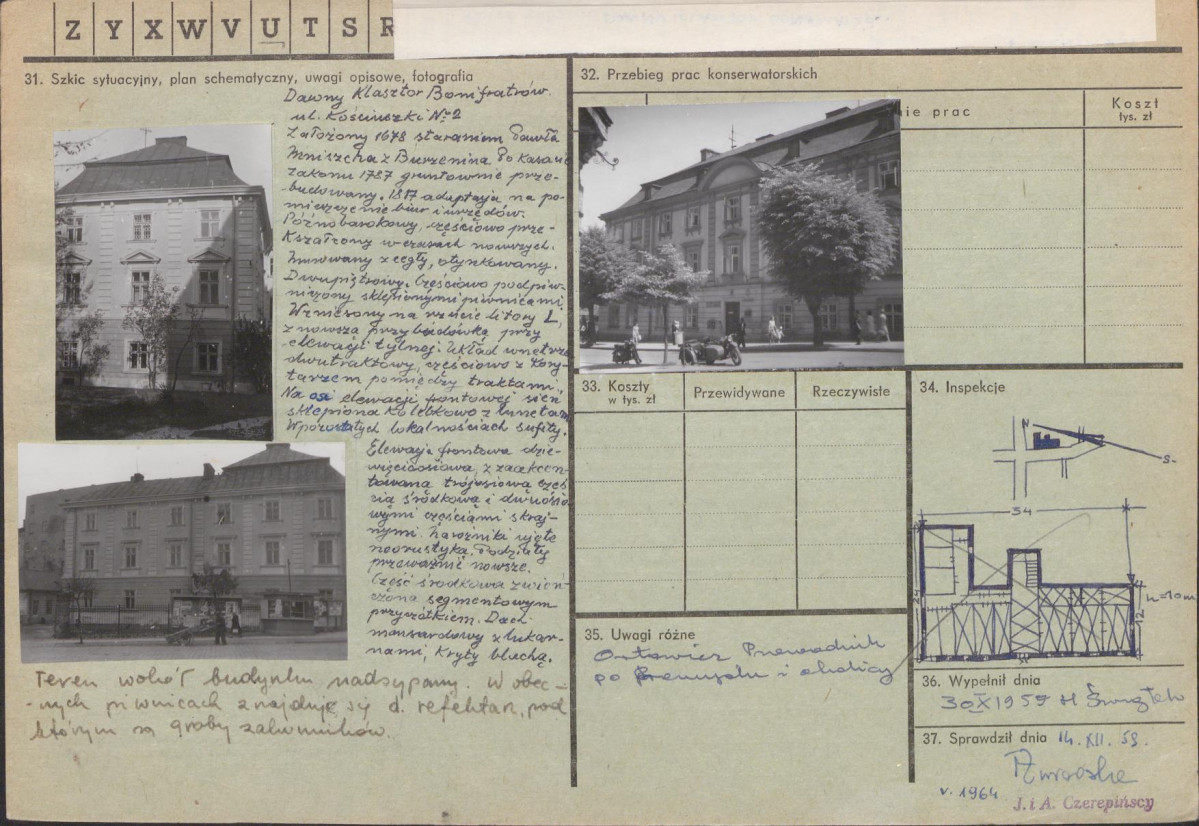 Z Y X W V U T S R
31. Szkic sytuacyjny, plan schematyczny, uwagi opisowe, fotografia
Dawny Klasztor Bonifratrów.
ul. Kościuszki № 2
Założony 1678 staraniem Pawła
Mniszcha z Bużenina. Po kasacie
zakonu 1787 gruntownie prze-
budowany. 1817 adaptacja na po-
mieszczenie biur i urzędów.
Późnobarokowy, częściowo prze-
kształcony w czasach nowszych.
Murowany z cegły, otynkowany.
Dwupiętrowy. Częściowo podpiw-
niczony sklepionymi piwnicami.
Wzniesony na rzucie litery L,
z nowszą przybudówką przy
elewacji tylnej. Układ wnętrz
dwutraktowy, częściowo z kory-
tarzem pomiędzy traktami.
Na osi elewacji frontowej sień
sklepiona kolebkowo z lunetami
W pozostałych lokalnościach sufity.
Elewacja frontowa dzie-
więcioosiowa, z zaakcen-
towaną trójosiową częś-
cią środkową i dwuosio-
wymi częściami skraj-
nymi. Narożniki ujęte
boorustyką. Podziały
przeważnie nowsze.
Część środkowa zwień-
czona segmentowym
przyczółkiem. Dach
mansardowy z lukar-
nami, kryty blachą.
Teren wokół budynku nadsypany. W obec-
-nych piwnicach znajduje się d. refektarz, pod
którym są groby zakonników.
32. Przebieg prac konserwatorskich
nie prac
Koszt
tys. zł
33. Koszty
w tys. zł
Przewidywane
Rzeczywiste
34. Inspekcje
N
S
34
12
h=10m
35. Uwagi różne
Orłowicz Przewodnik
po Przemyślu i okolicy
36. Wypełnił dnia
30 X 1959 H
37. Sprawdził dnia 14. XII. 59.
v. 1964
J. i A. Czerepińscy